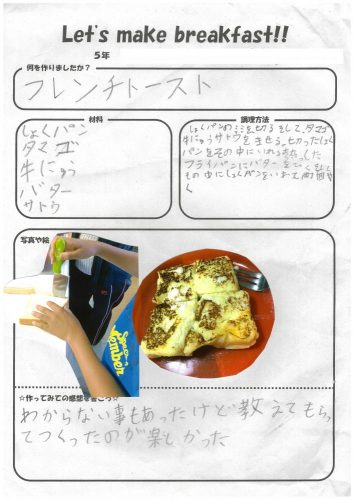 Let's make breakfast!!
5年
何を作りましたか？
フレンチトースト
材料
しょくパン
タマゴ
牛にゅう
バター
サトウ
調理方法
しょくパンのミミを切る そして、タマゴ
牛にゅうサトウをまぜる 切ったしょく
パンをその中にいれる
フライパンにバターを
その中にしょくパンをいれて両面や
く
写真や絵
☆作ってみての感想を書こう☆
わからない事もあったけど教えてもらっ
てつくったのが楽しかった